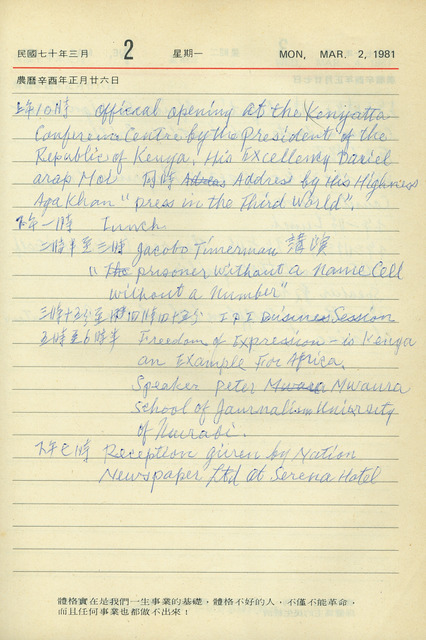 民國七十年三月 2 星期一 MON, MAR. 2, 1981
農曆辛酉年正月廿六日
上午10時 official opening at the Kenyatta
Conference Centre by the President of the
Republic of Kenya, His Excellency Daniel
arap Moi 同時 Address by His Highness
Aga Khan "press in the Third World".
下午一時 Lunch
二時半至三時 Jacobo Timerman 講演
"The prisoner without a name Cell
without a number"
三時十五分至四時四十五分 I P I Business Session
五時至6時半 Freedom of Expression - is Kenya
an Example For Africa.
Speaker peter Mwaura
school of Journalism University
of Nairobi.
下午七時 Reception given by Nation
Newspaper Ltd at Serena Hotel
體格實在是我們一生事業的基礎，體格不好的人，不僅不能革命，
而且任何事業也都做不出來！